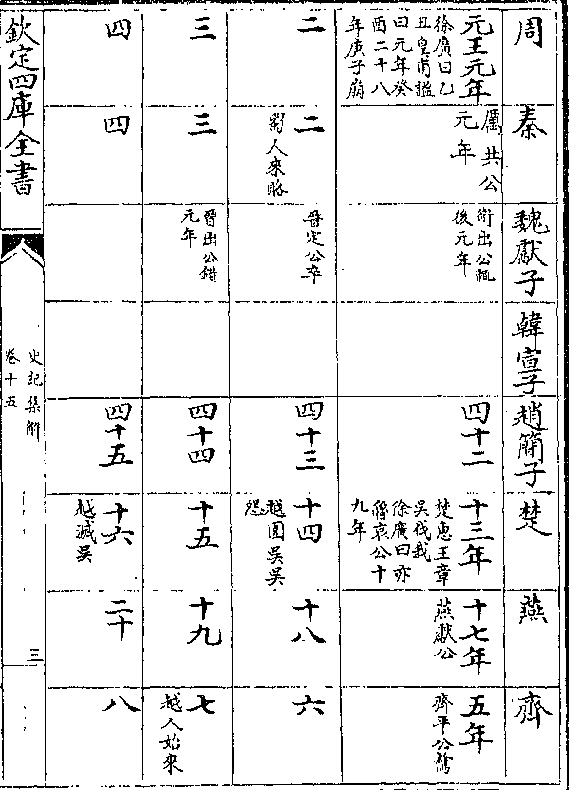 周
秦
魏獻子
韓宣子
趙簡子
楚
燕
齊
元王元年
徐廣曰乙
丑皇甫謐
曰元年癸
酉二十八
年庚子崩
厲共公
元年
衛出公輒
後元年
四十二
十三年
楚惠王章
吳伐我
徐廣曰亦
魯哀公十
九年
十七年
燕獻公
五年
齊平公驁
二
二
蜀人來賂
晉定公卒
四十三
十四
越圍吳吳
怨
十八
六
三
三
晉出公錯
元年
四十四
十五
十九
七
越人始來
四
四
四十五
十六
越滅吳
二十
八
欽定四庫全書
史記集解
卷十五
三